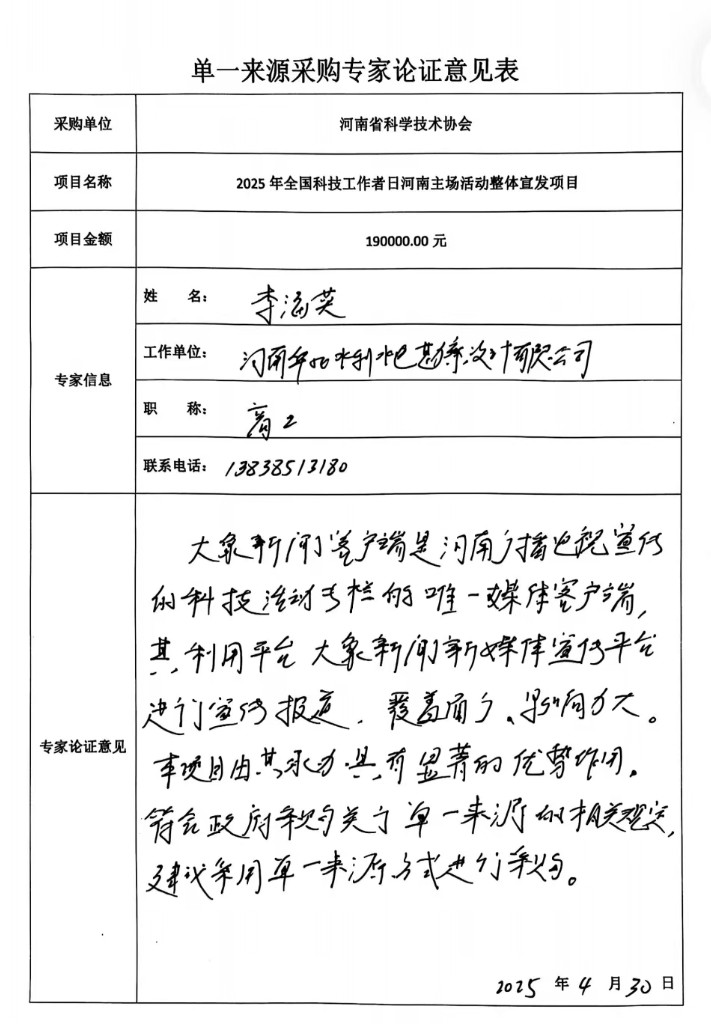 单一来源采购专家论证意见表
采购单位 河南省科学技术协会
项目名称 2025年全国科技工作者日河南主场活动整体宣发项目
项目金额 190000.00元
专家信息
姓 名： 李涵英
工作单位： 河南华北水利水电勘察设计有限公司
职 称： 高工
联系电话： 13838513180
专家论证意见
大象新闻客户端是河南广播电视宣传
的科技活动专栏的唯一媒体客户端，
其利用平台大象新闻新媒体宣传平台
进行宣传报道，覆盖面广、影响力大。
本项目由其承办具有显著的优势作用，
符合政府采购关于单一来源的相关规定，
建议采用单一来源方式进行采购。
2025年4月30日